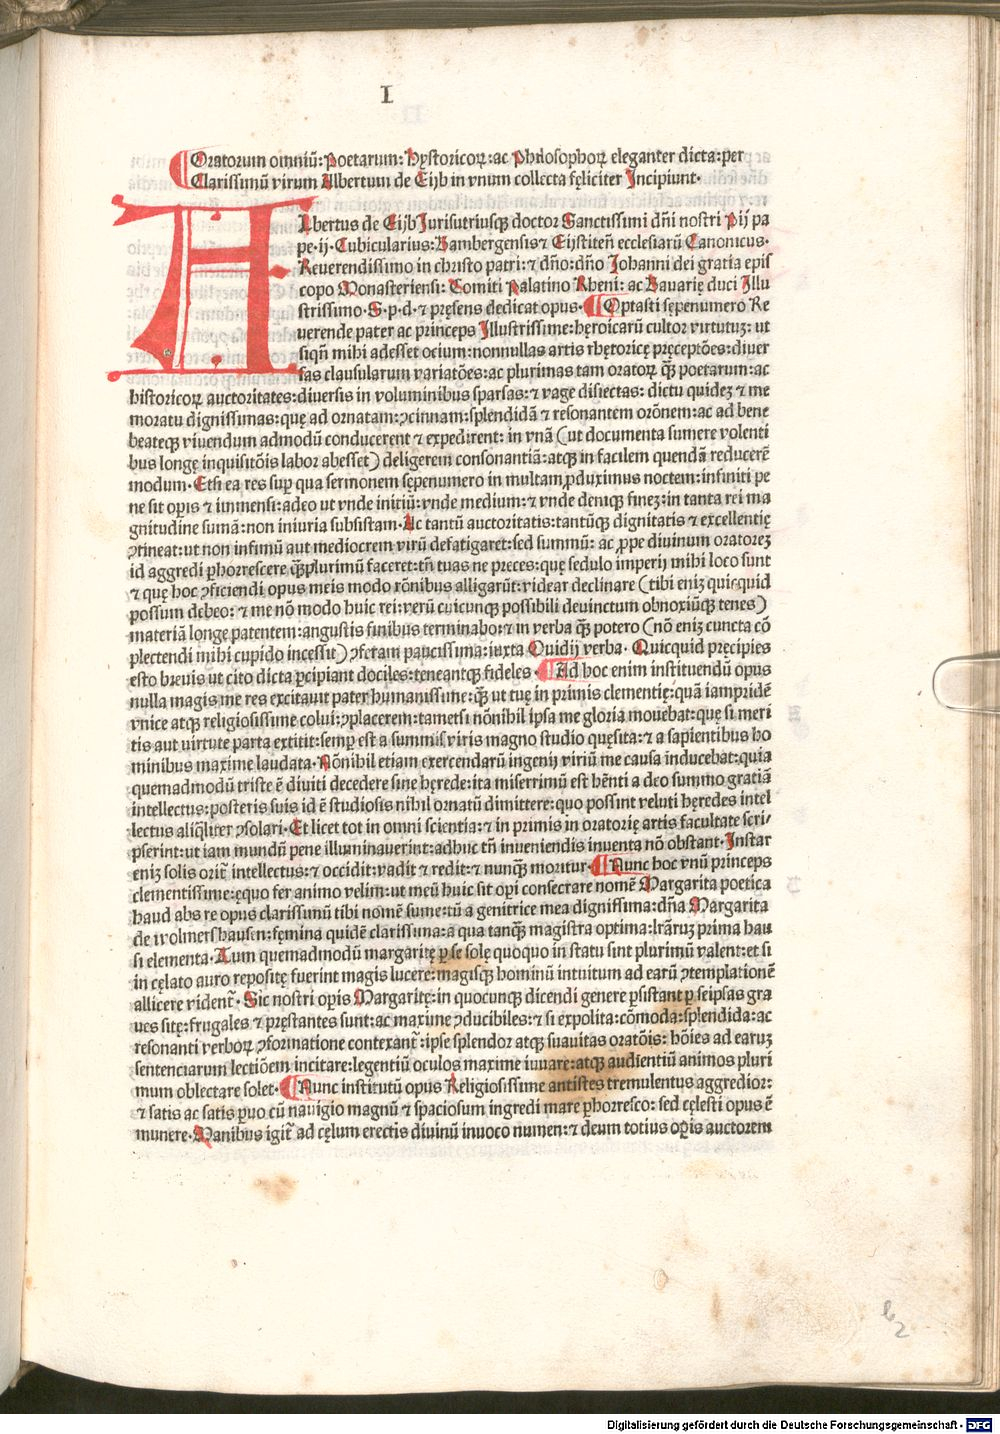 I
Oratorum omniū: Poetarum: Hystoricoꝝ: ac Philosophoꝝ eleganter dicta: per
Clarissimū virum Albertum de Eijb in vnum collecta fęliciter Incipiunt.
Albertus de Eijb Jurisutriusqꝫ doctor Sanctissimi dñi nostri Pij pa
pe.ij. Cubicularius: Bambergensis ⁊ Eijstiteñ ecclesiarū Canonicus.
Reuerendissimo in christo patri: ⁊ dño: dño Johanni dei gratia epis
copo Monasteriensi: Comiti Palatino Rheni: ac Bauarię duci Illu
strissimo. S.p.d. ⁊ pręsens dedicat opus. Optasti sępenumero Re
uerende pater ac princeps Illustrissime: hęroicarū cultor virtutuꝫ: ut
siqñ mihi adesset ocium: nonnullas artis rhętoricę pręceptōes: diuer
sas clausularum variatōes: ac plurimas tam oratoꝝ qꝫ̄ poetarum: ac
historicoꝝ auctoritates: diuersis in voluminibus sparsas: ⁊ vage disiectas: dictu quideꝫ ⁊ me
moratu dignissimas: quę ad ornatam: ꝯcinnam: splendidā ⁊ resonantem orōnem: ac ad bene
beateqꝫ viuendum admodū conducerent ⁊ expedirent: in vnā (ut documenta sumere volenti
bus longę inquisitōis labor abesset) deligerem consonantiā: atqꝫ in facilem quendā reducerē
modum. Etsi ea res suꝑ qua sermonem sępenumero in multam ꝓduximus noctem: infiniti pe
ne sit oꝑis ⁊ immensi: adeo ut vnde initiū: vnde medium: ⁊ vnde deniqꝫ fineꝫ: in tanta rei ma
gnitudine sumā: non iniuria subsistam. Ac tantū auctoritatis: tantūqꝫ dignitatis ⁊ excellentię
ꝯtineat: ut non infimū aut mediocrem virū defatigaret: sed summū: ac ꝓpe diuinum oratoreꝫ
id aggredi ꝑhorrescere qꝫ̄plurimū faceret: tñ tuas ne preces: quę sedulo imperij mihi loco sunt
⁊ quę hoc ꝯficiendi opus meis modo rōnibus alligarūt: videar declinare (tibi eniꝫ quicquid
possum debeo: ⁊ me nō modo huic rei: verū cuicunqꝫ possibili deuinctum obnoxiūqꝫ tenes)
materiā longe patentem: angustis finibus terminabo: ⁊ in verba qꝫ̄ potero (nō eniꝫ cuncta cō
plectendi mihi cupido incessit) ꝯferam paucissima: iuxta Ouidij verba. Quicquid pręcipies
esto breuis ut cito dicta ꝑcipiant dociles: teneantqꝫ fideles. Ad hoc enim instituendū opus
nulla magis me res excitauit pater humanissime: qꝫ̄ ut tuę in primis clementię: quā iampridē
vnice atqꝫ religiosissime colui: ꝯplacerem: tametsi nōnihil ipsa me gloria mouebat: quę si meri
tis aut virtute parta extitit: semꝑ est a summis viris magno studio quęsita: ⁊ a sapientibus ho
minibus maxime laudata. Nōnihil etiam exercendarū ingenij viriū me causa inducebat: quia
quemadmodū triste ē diuiti decedere sine hęrede: ita miserrimū est hēnti a deo summo gratiā
intellectus: posteris suis id ē studiosis nihil ornatū dimittere: quo possint veluti hęredes intel
lectus aliq̄liter ꝯsolari. Et licet tot in omni scientia: ⁊ in primis in oratorię artis facultate scri
pserint: ut iam mundū pene illuminauerint: adhuc tñ inueniendis inuenta nō obstant. Instar
eniꝫ solis orit᷑ intellectus: ⁊ occidit: vadit ⁊ redit: ⁊ nunqꝫ̄ moritur. Nunc hoc vnū princeps
clementissime: ęquo fer animo velim: ut meū huic sit oꝑi consecrare nomē Margarita poetica
haud abs re opus clarissimū tibi nomē sume: tū a genitrice mea dignissima: dña Margarita
de wolmershausen: fęmina quidē clarissima: a qua tanqꝫ̄ magistra optima: lrāruꝫ prima hau
si elementa. Tum quemadmodū margaritę ꝑ se solę quoquo in statu sint plurimū valent: et si
in cęlato auro repositę fuerint magis lucere: magisqꝫ hominū intuitum ad earū ꝯtemplationē
allicere vident᷑. Sic nostri oꝑis Margaritę: in quocunqꝫ dicendi genere ꝑsistant ꝑ seipsas gra
ues sitę: frugales ⁊ pręstantes sunt: ac maxime ꝯducibiles: ⁊ si expolita: cōmoda: splendida: ac
resonanti verboꝝ ꝯformatione contexant᷑: ipse splendor atqꝫ suauitas oratōis: hōies ad earuꝫ
sentenciarum lectiōem incitare: legentiū oculos maxime iuuare: atqꝫ audientiū animos pluri
mum oblectare solet. Nunc institutū opus Religiosissime antistes tremulentus aggredior:
⁊ satis ac satis ꝑuo cū nauigio magnū ⁊ spaciosum ingredi mare ꝑhorresco: sed cęlesti opus ē
munere. Manibus igit᷑ ad cęlum erectis diuinū inuoco numen: ⁊ deum totius oꝑis auctorem
b2
Digitalisierung gefördert durch die Deutsche Forschungsgemeinschaft - DFG